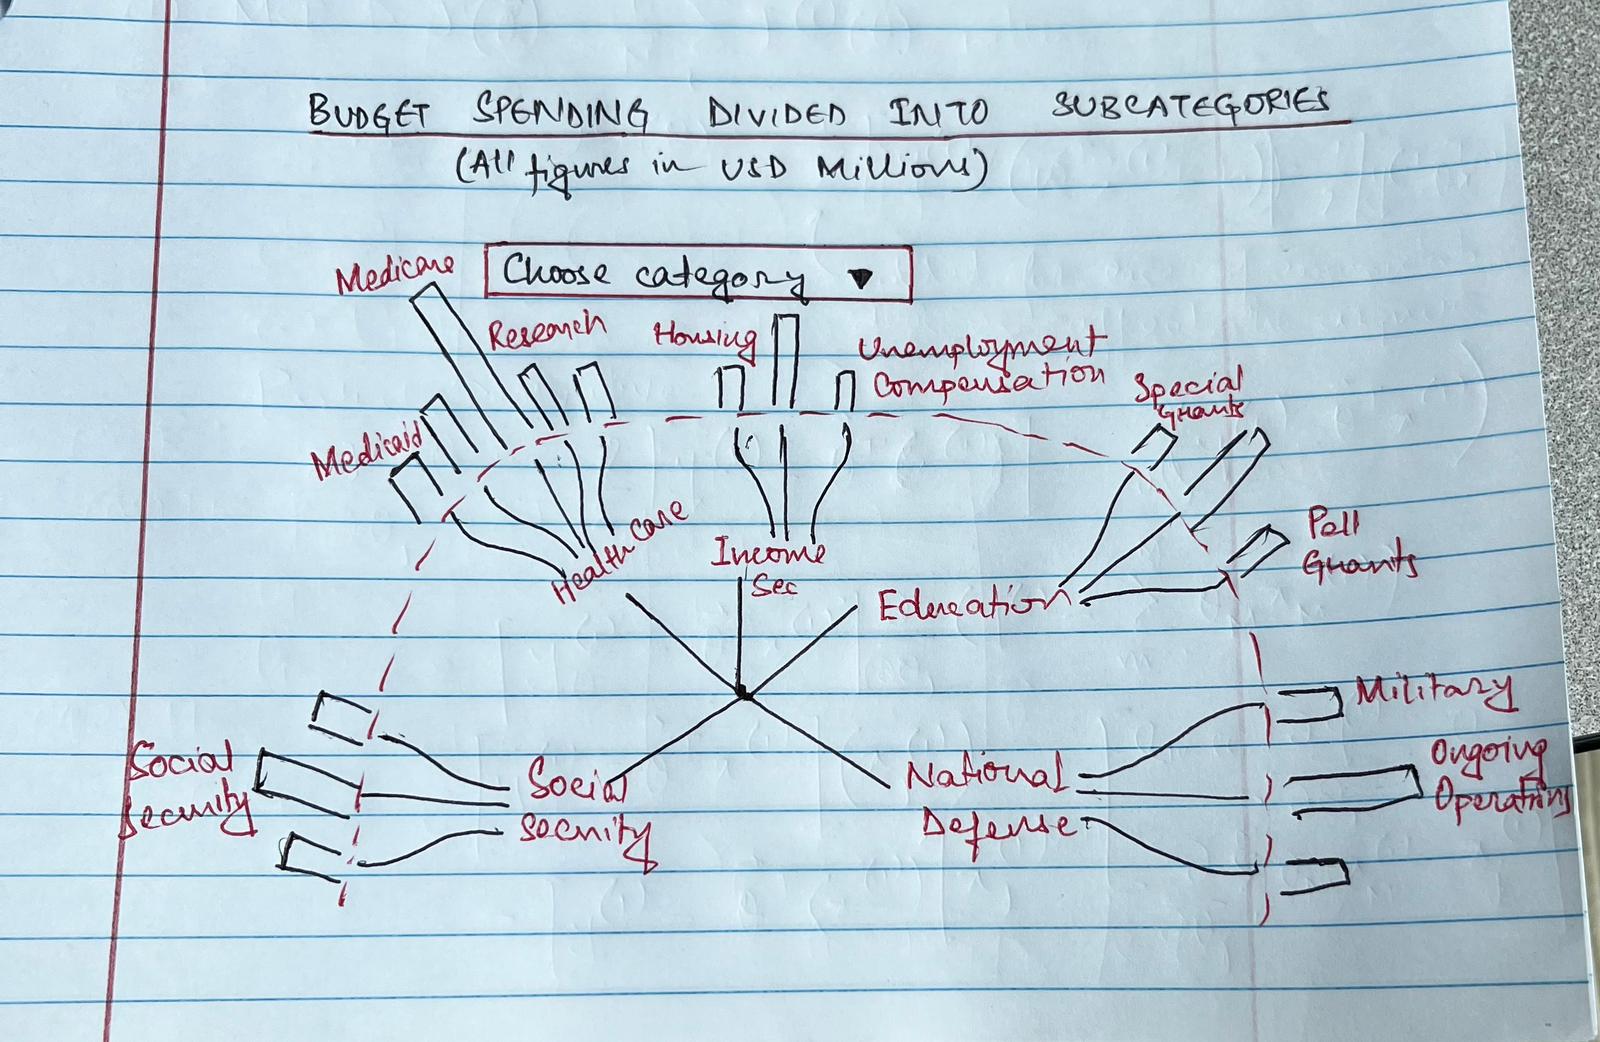 BUDGET SPENDING DIVIDED INTO SUBCATEGORIES
(All figures in USD Millions)
Choose category ▼
Medicare
Research
Housing
Unemployment
Compensation
Special
Grants
Medicaid
Health Care
Income
Sec
Education
Pell
Grants
Military
Social
Security
Social
Security
National
Defense
Ongoing
Operations